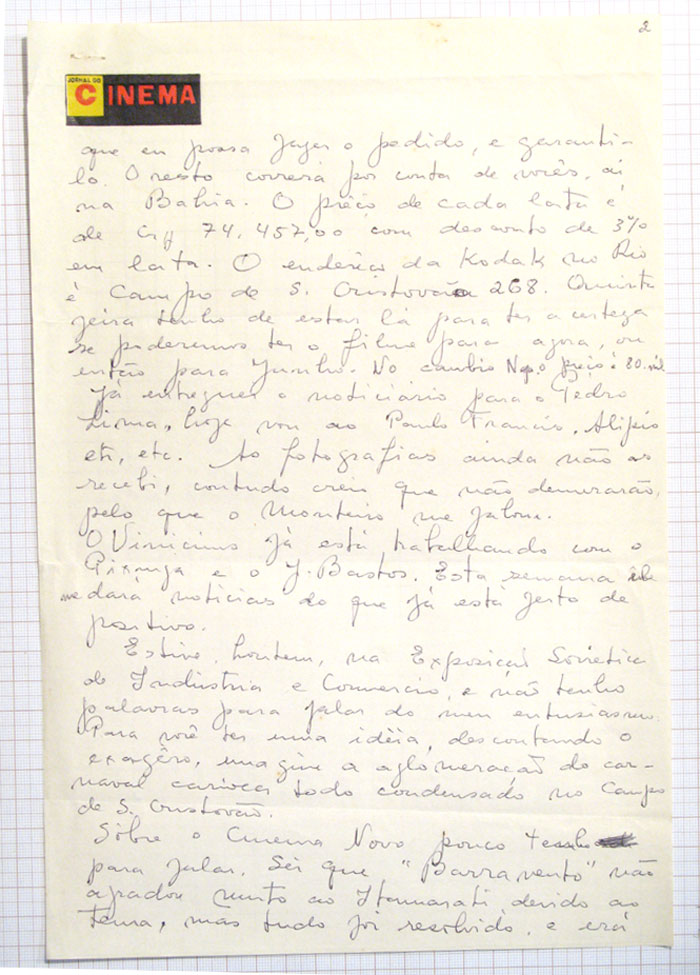 2
JORNAL DO
CINEMA
que eu possa fazer o pedido, e garanti-
lo. O resto correrá por conta de vocês, aí
na Bahia. O prêço de cada lata é
de Cr$ 74.457,00 com desconto de 3%
em lata. O enderêço da Kodak no Rio
é Campo de S. Cristovão 268. Quinta
feira tenho de estar lá para ter a certeza
se poderemos ter o filme para agora, ou
então para Junho. No cambio Neg. o preço é 80. mil
Já entreguei o noticiário para o Pedro
Lima, hoje vou ao Paulo Francis, Alipio
etc, etc. As fotografias ainda não as
recebi, contudo creio que não demorarão,
pelo que o Monteiro me falou.
O Vinicius já está trabalhando com o
Pixinga e o J. Bastos. Esta semana êle
me dará noticias do que já está feito de
positivo.
Estive, hontem, na Exposição Sovietica
de Indústria e Comercio, e não tenho
palavras para falar do meu entusiasmo.
Para você ter uma idéia, descontando o
exagêro, imagine a aglomeração do car-
naval carioca todo condensado no Campo
de S. Cristovão.
Sôbre o Cinema Novo pouco tenho
para falar. Sei que "Barravento" não
agradou junto ao Itamarati devido ao
tema, mas tudo foi resolvido, e irá